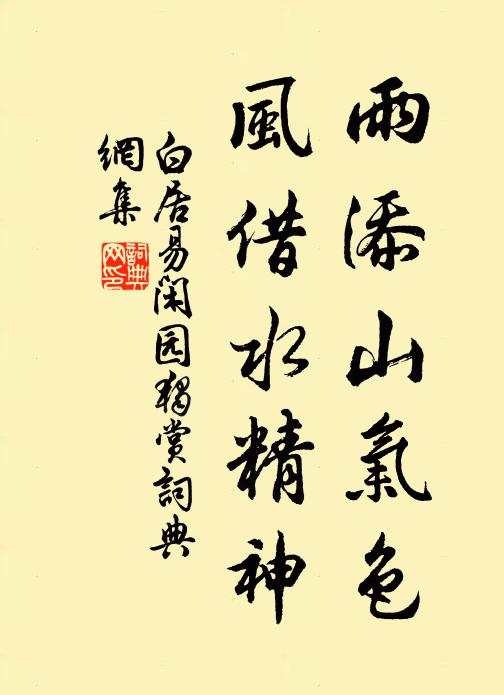 雨添山氣色
風借水精神
白居易閑园獨賞詞典
網集
詞典
网印